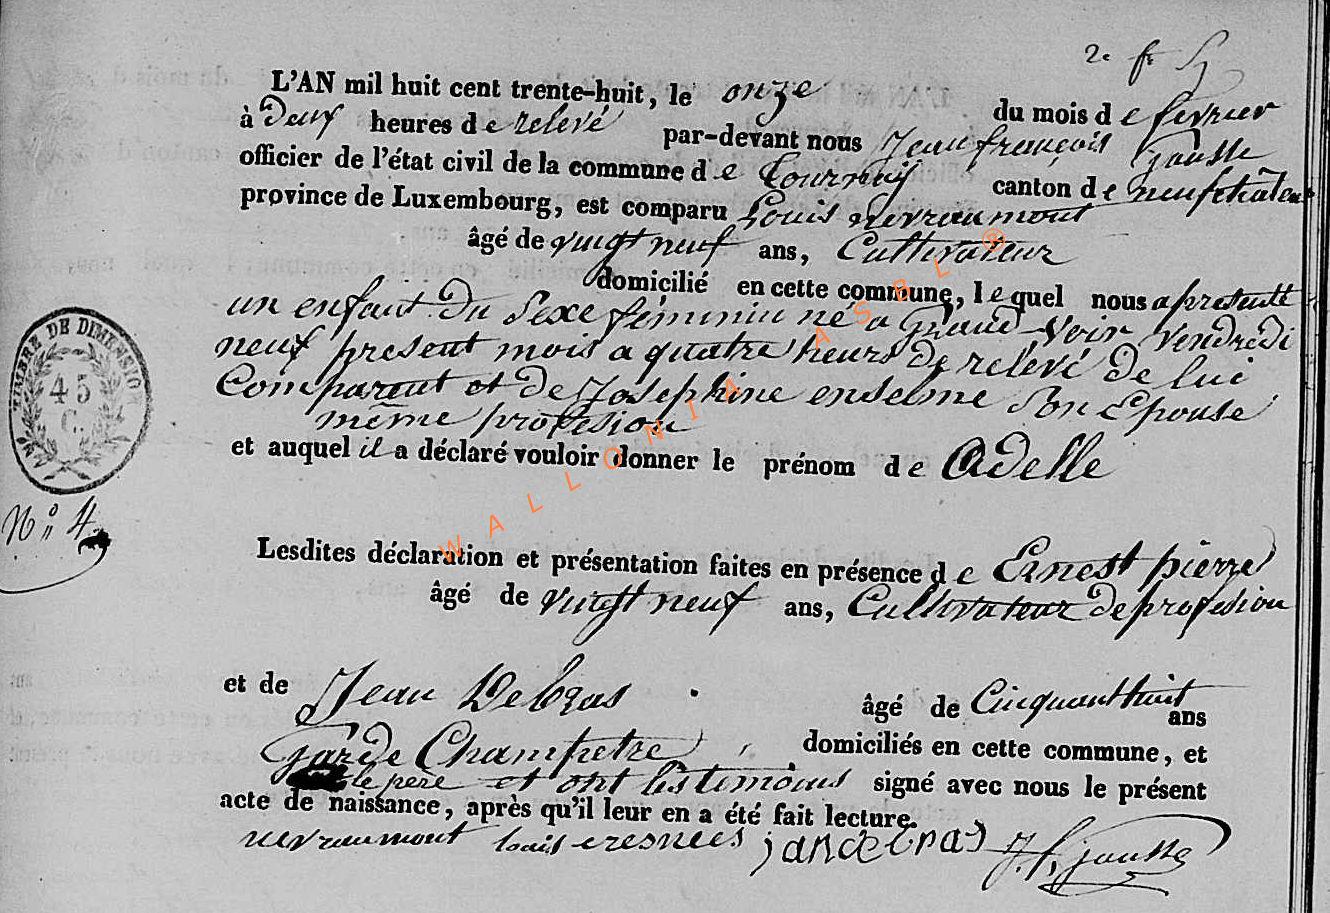 2e f.
L'AN mil huit cent trente-huit, le onze du mois de fevrier
à deux heures de relevé par-devant nous Jean françois Gousse
officier de l'état civil de la commune de Tournay canton de neufchateau
province de Luxembourg, est comparu Louis nevraumont
âgé de vingt neuf ans, Cultivateur
domicilié en cette commune, lequel nous a presenté
un enfant du Sexe féminin né a Grand-Voir Vendredi
neuf present mois a quatre heurs de relevé de lui
Comparent et de Josephine enselme Son Epouse
même profesion
et auquel il a déclaré vouloir donner le prénom de Adelle
TIMBRE DE DIMENSION
45
C.
N° 4
Lesdites déclaration et présentation faites en présence de Ernest pierre
âgé de vingt neuf ans, Cultivateur de profesion
et de Jean Debras âgé de Cinquant huit ans
garde Champetre domiciliés en cette commune, et
le pere et ont les temoins signé avec nous le présent
acte de naissance, après qu'il leur en a été fait lecture.
nevraumont louis J. f. Gousse
WALLONIA ASBL ®